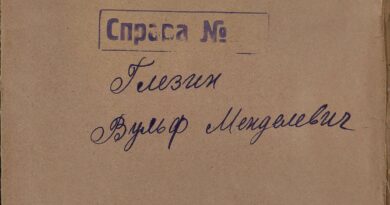 Справа №
Глезин
Вульф Менделевич